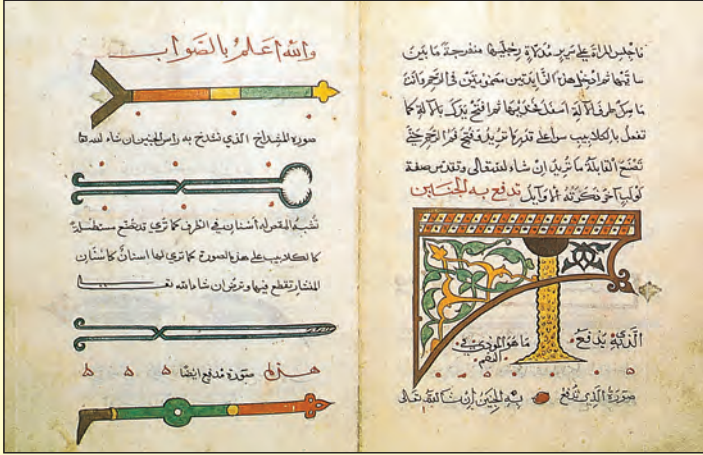 فاجلس المراة على سرير مدلاة رجليها منفرجة ما بين
ساقيها ثم ادخل هذ الزايدتين مضمومتين في الرحم وانت
ماسك طرف الالة اسفل فخذيها ثم افتح يدك بالالة كما
تفعل بالكلاليب سوا على قدر ما تريد فتح فم الرحم حتى
تضع القابلة ما تريد ان شاء الله تعالى وتقدس صفة
لولب آخر ذكرته الاوايل تدفع به الجنين
الذي يدفع
ما هو
صورة الذي تدفع به الجنين ان شا الله تعالى
والله اعلم بالصواب
صورة المشداخ الذي تشدخ به راس الجنين ان شاء الله تعا
تشبه المقص له أسنان في الطرف كما ترى قد تصنع مستطيلة
كالكلاليب على هذه الصورة كما ترى لها اسنان كاسنان
المنشار تقطع فيها وترض ان شاء الله تعـ
هذه صورة مدفع ايضا